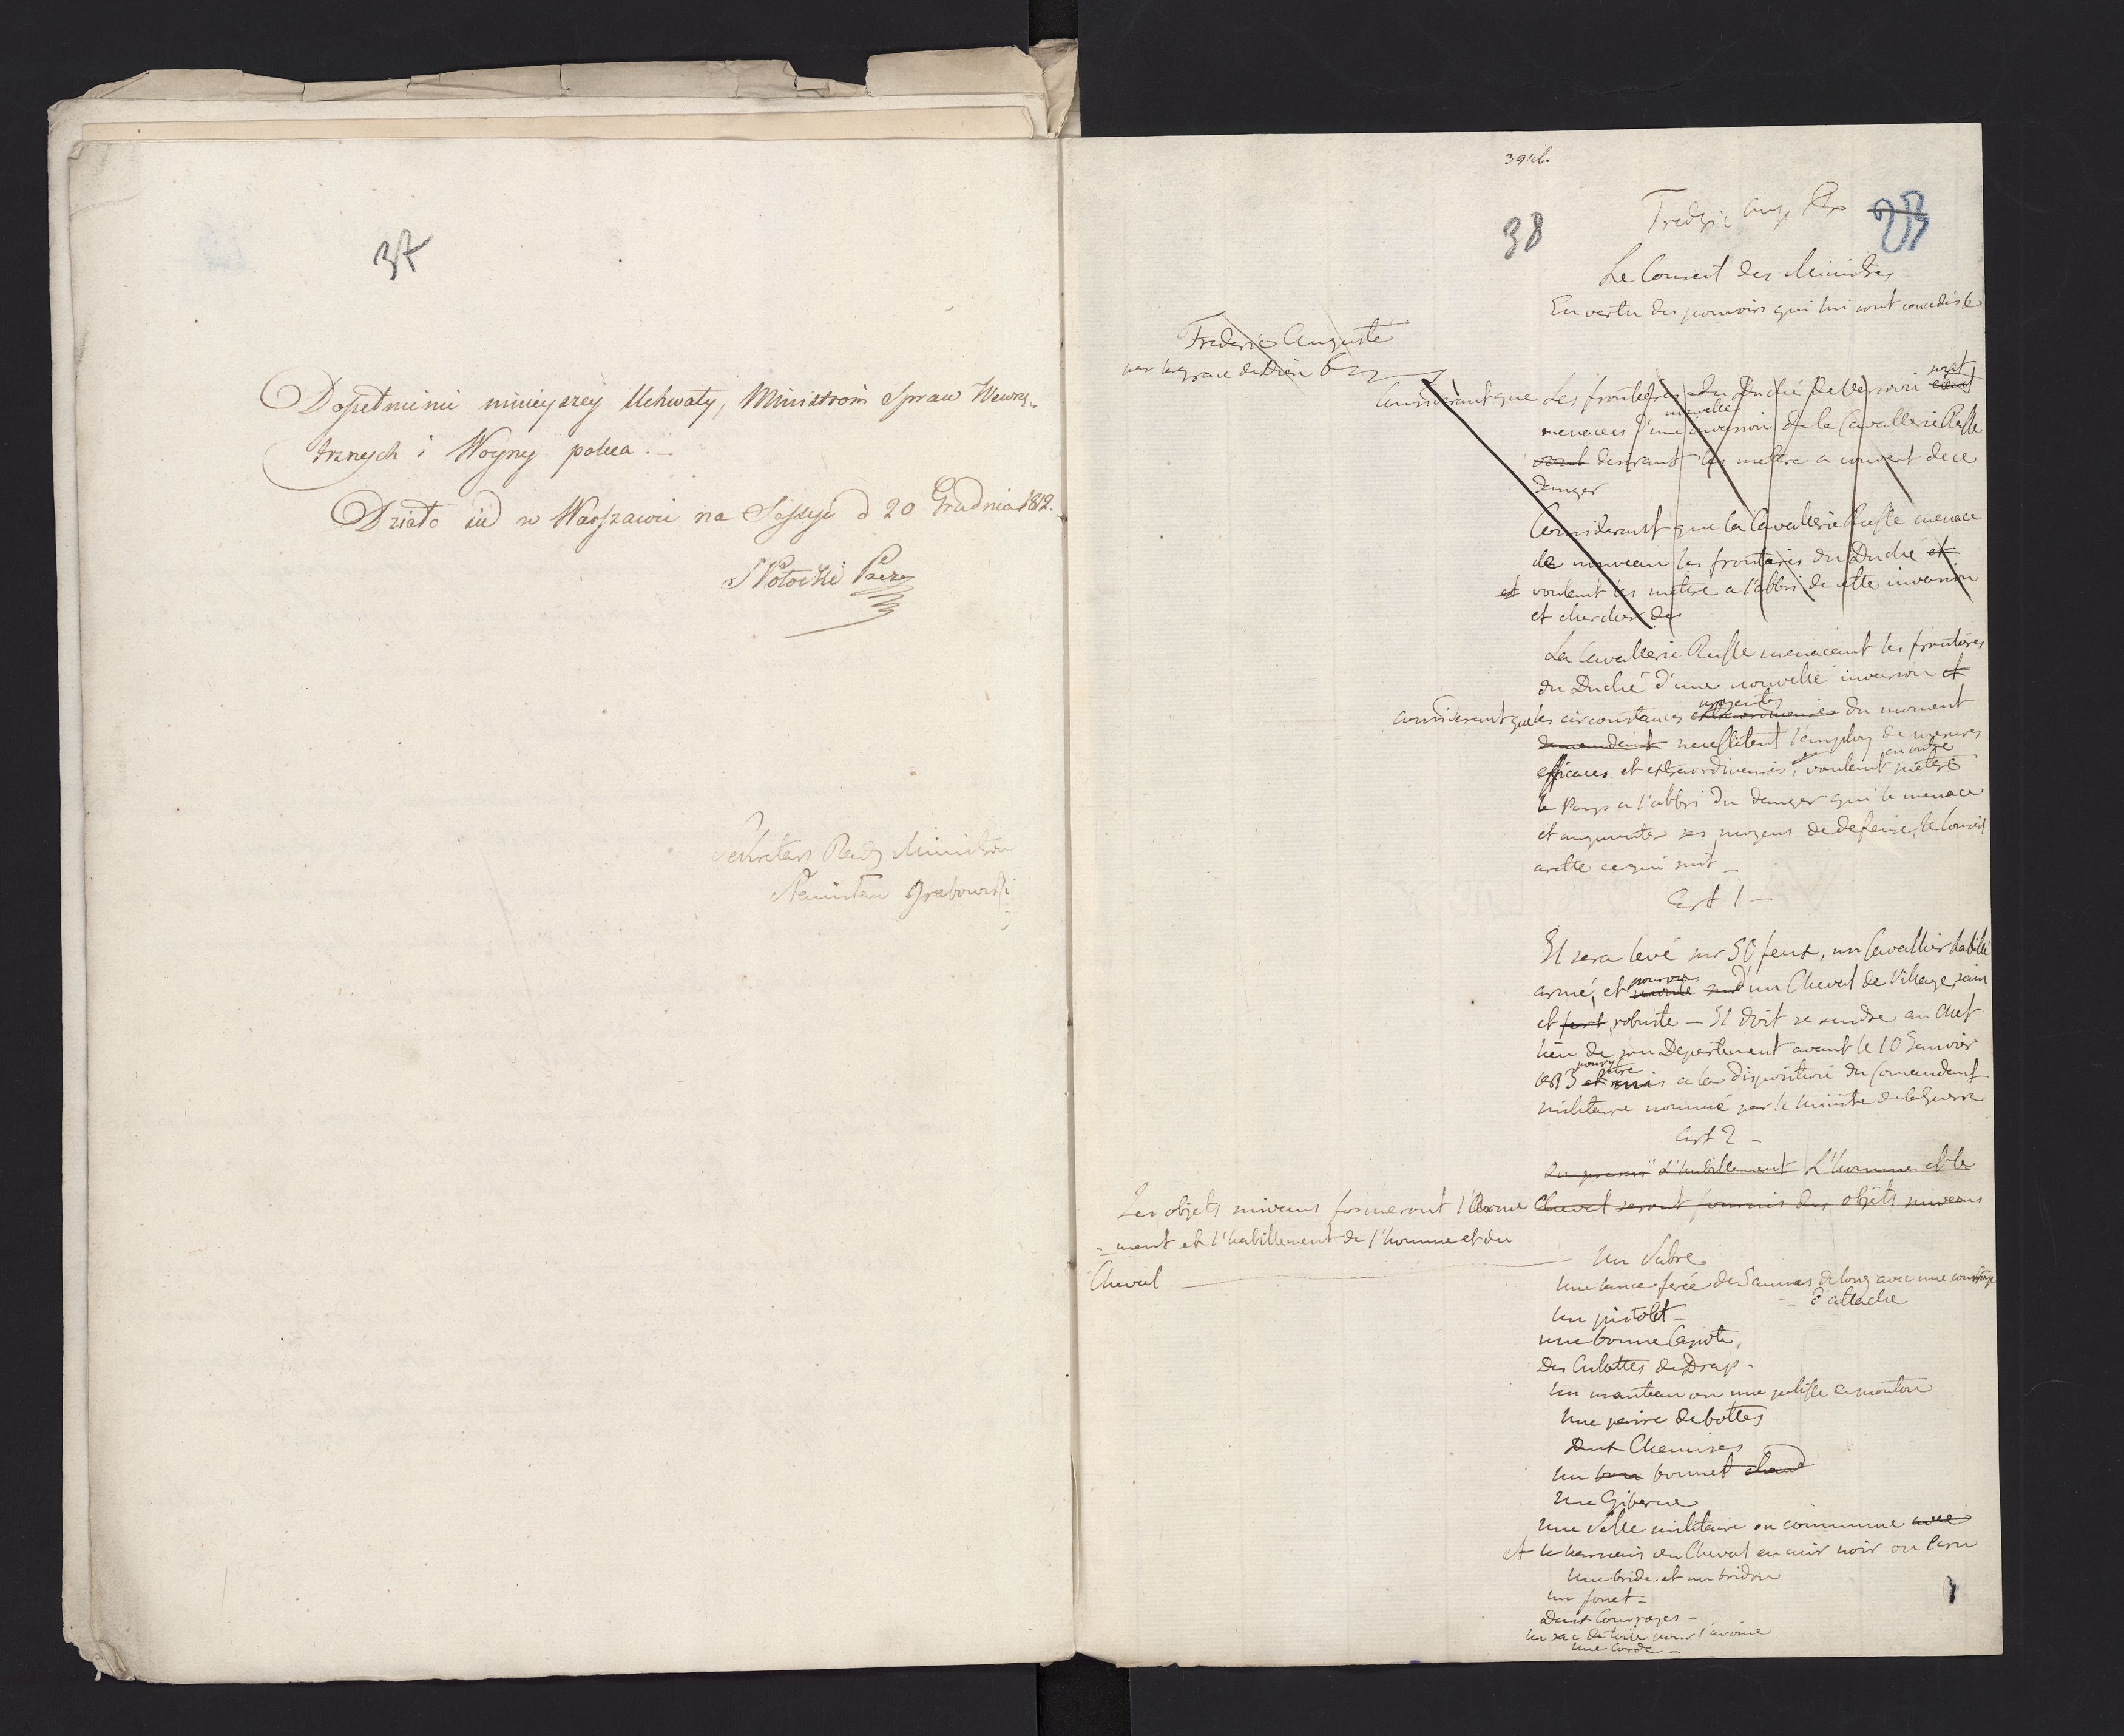 37
Dopełnienie ninieyszey Uchwały, Ministrom Spraw Wewnę-
trznych i Woyny poleca. —
Działo się w Warszawie na Sessyi d 20 Grudnia 1812.
S Potocki Prezes
Sekretarz Rady Ministrów
Stanisław Grabowski
394b.
38
23
Frederic Aug.
Le Conseil des Ministres
En vertu des pouvoirs qui lui sont concedés &
Frederic Auguste
par la grace de Dieu &
Considerant que Les frontières du Duché de Varsovie sont étant
menacées d'une nouvelle invasion de la Cavallerie Russe
desirant les mettre a couvert de ce
danger
Considerant que la Cavallerie Russe menace
de nouveau les frontières du Duché et
et voulant les mettre a l'abbri de cette invasion
et chercher des
La Cavallerie Russe menacant les frontières
du Duché d'une nouvelle invasion et
considerant que les circonstances urgentes extraordinaires du moment
demandent necessitent l'employ de mesures
efficaces et extraordinaires, voulant en outre mettre
le Pays a l'abbri du danger qui le menace
et augmenter ses moyens de defense, le Conseil
arette ce qui suit —
Art 1 —
Il sera levé sur 50 feux, un Cavallier habillé
armé, et pourvu monté sur d'un Cheval de Village, sain
et fort, robuste — Il doit se rendre au Chef
lieu de son Departement avant le 10 Janvier
1813 pour y etre et mis a la disposition du Comandant
militaire nommé par le Ministre de la Guerre
Art 2 —
L'habillement L'homme et le
Cheval seront fournis des objets suivans
Les objets suivans formeront l'Arme
-ment et l'habillement de l'homme et du
Cheval —
Un Sabre
Une lance ferée de 5 aunes de long avec une courroye
d'attache
Un pistolet —
une bonne Capote,
Des Culottes de Drap.
Un manteau ou une pelisse en mouton
Une paire de bottes
Deux Chemises
Un bon bonnet chaud
Une Giberne
Une Selle militaire ou commune avec
et le harnais du Cheval en cuir noir ou
Une bride et un bridon
un fouet —
Deux Courroyes —
Un sac de toile pour l'avoine
Une corde —